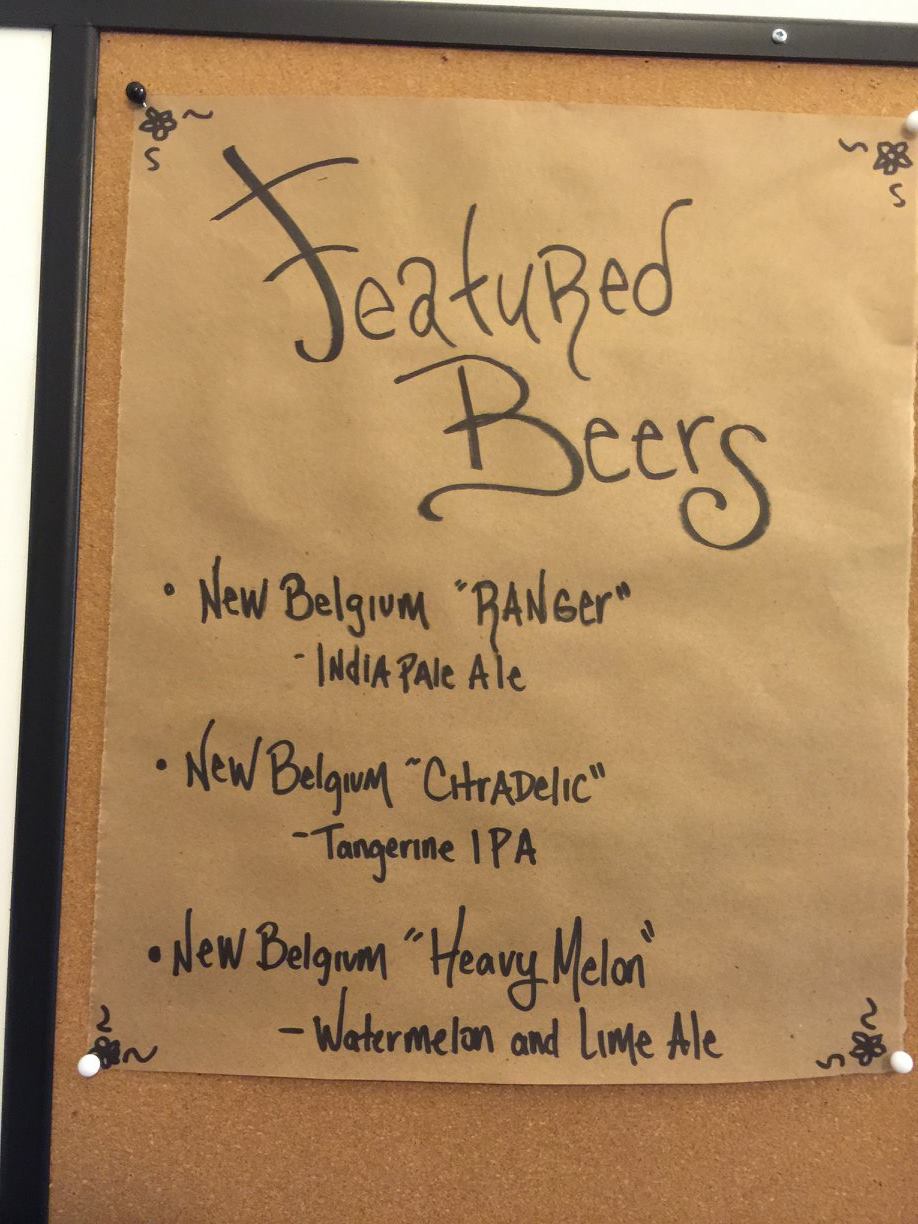 Featured
Beers
• New Belgium "Ranger"
- India Pale Ale
• New Belgium "Citradelic"
- Tangerine IPA
• New Belgium "Heavy Melon"
- Watermelon and Lime Ale